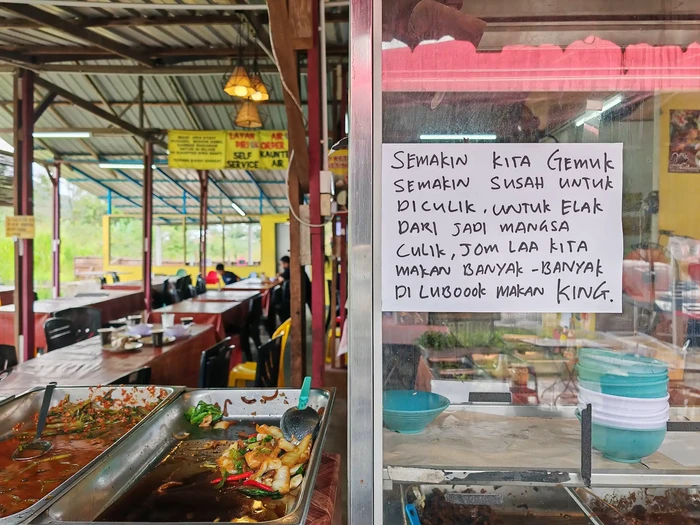 LAYAN
DIRI
SELF
SERVICE
ORDER
AIR
KAUNTER
AIR
SEMAKIN KITA GEMUK
SEMAKIN SUSAH UNTUK
DICULIK. UNTUK ELAK
DARI JADI MANGSA
CULIK, JOM LAA KITA
MAKAN BANYAK-BANYAK
DI LUBOOOK MAKAN KING.